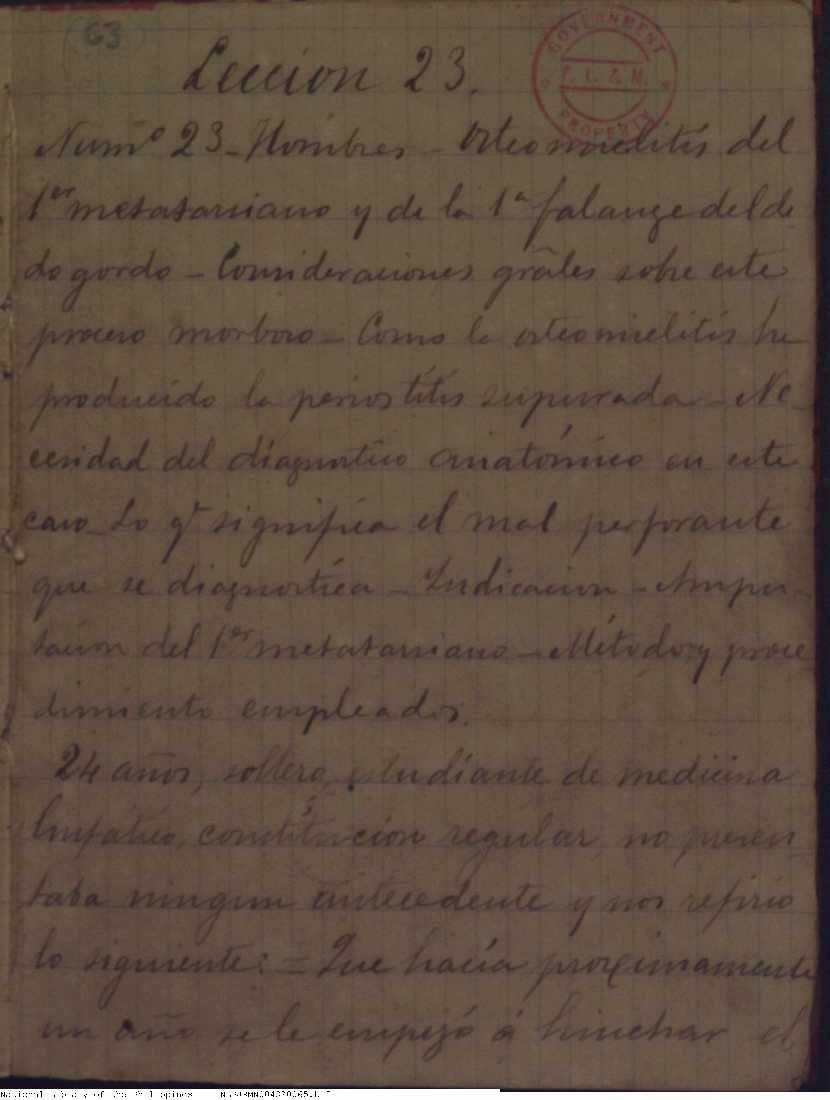 63
GOVERNMENT
P. L. & M.
PROPERTY
Leccion 23.
Num.º 23 - Hombres - Osteomielitis del
1er metatarsiano y de la 1ª falange del de
do gordo - Consideraciones grãles sobre este
proceso morboso - Como la osteomielitis ha
producido la periostitis supurada - Ne-
cesidad del diagnostico anatómico en este
caso - Lo q.e significa el mal perforante
que se diagnostica - Indicacion - Ampu-
tacion del 1er metatarsiano - Método y proce
dimiento empleados.
24 años, soltero, estudiante de medicina
linfatico, constitucion regular, no presen
taba ningun antecedente y nos refirio
lo siguiente: = Que hacía proximamente
un año se le empezó á hinchar el
National Library of the Philippines